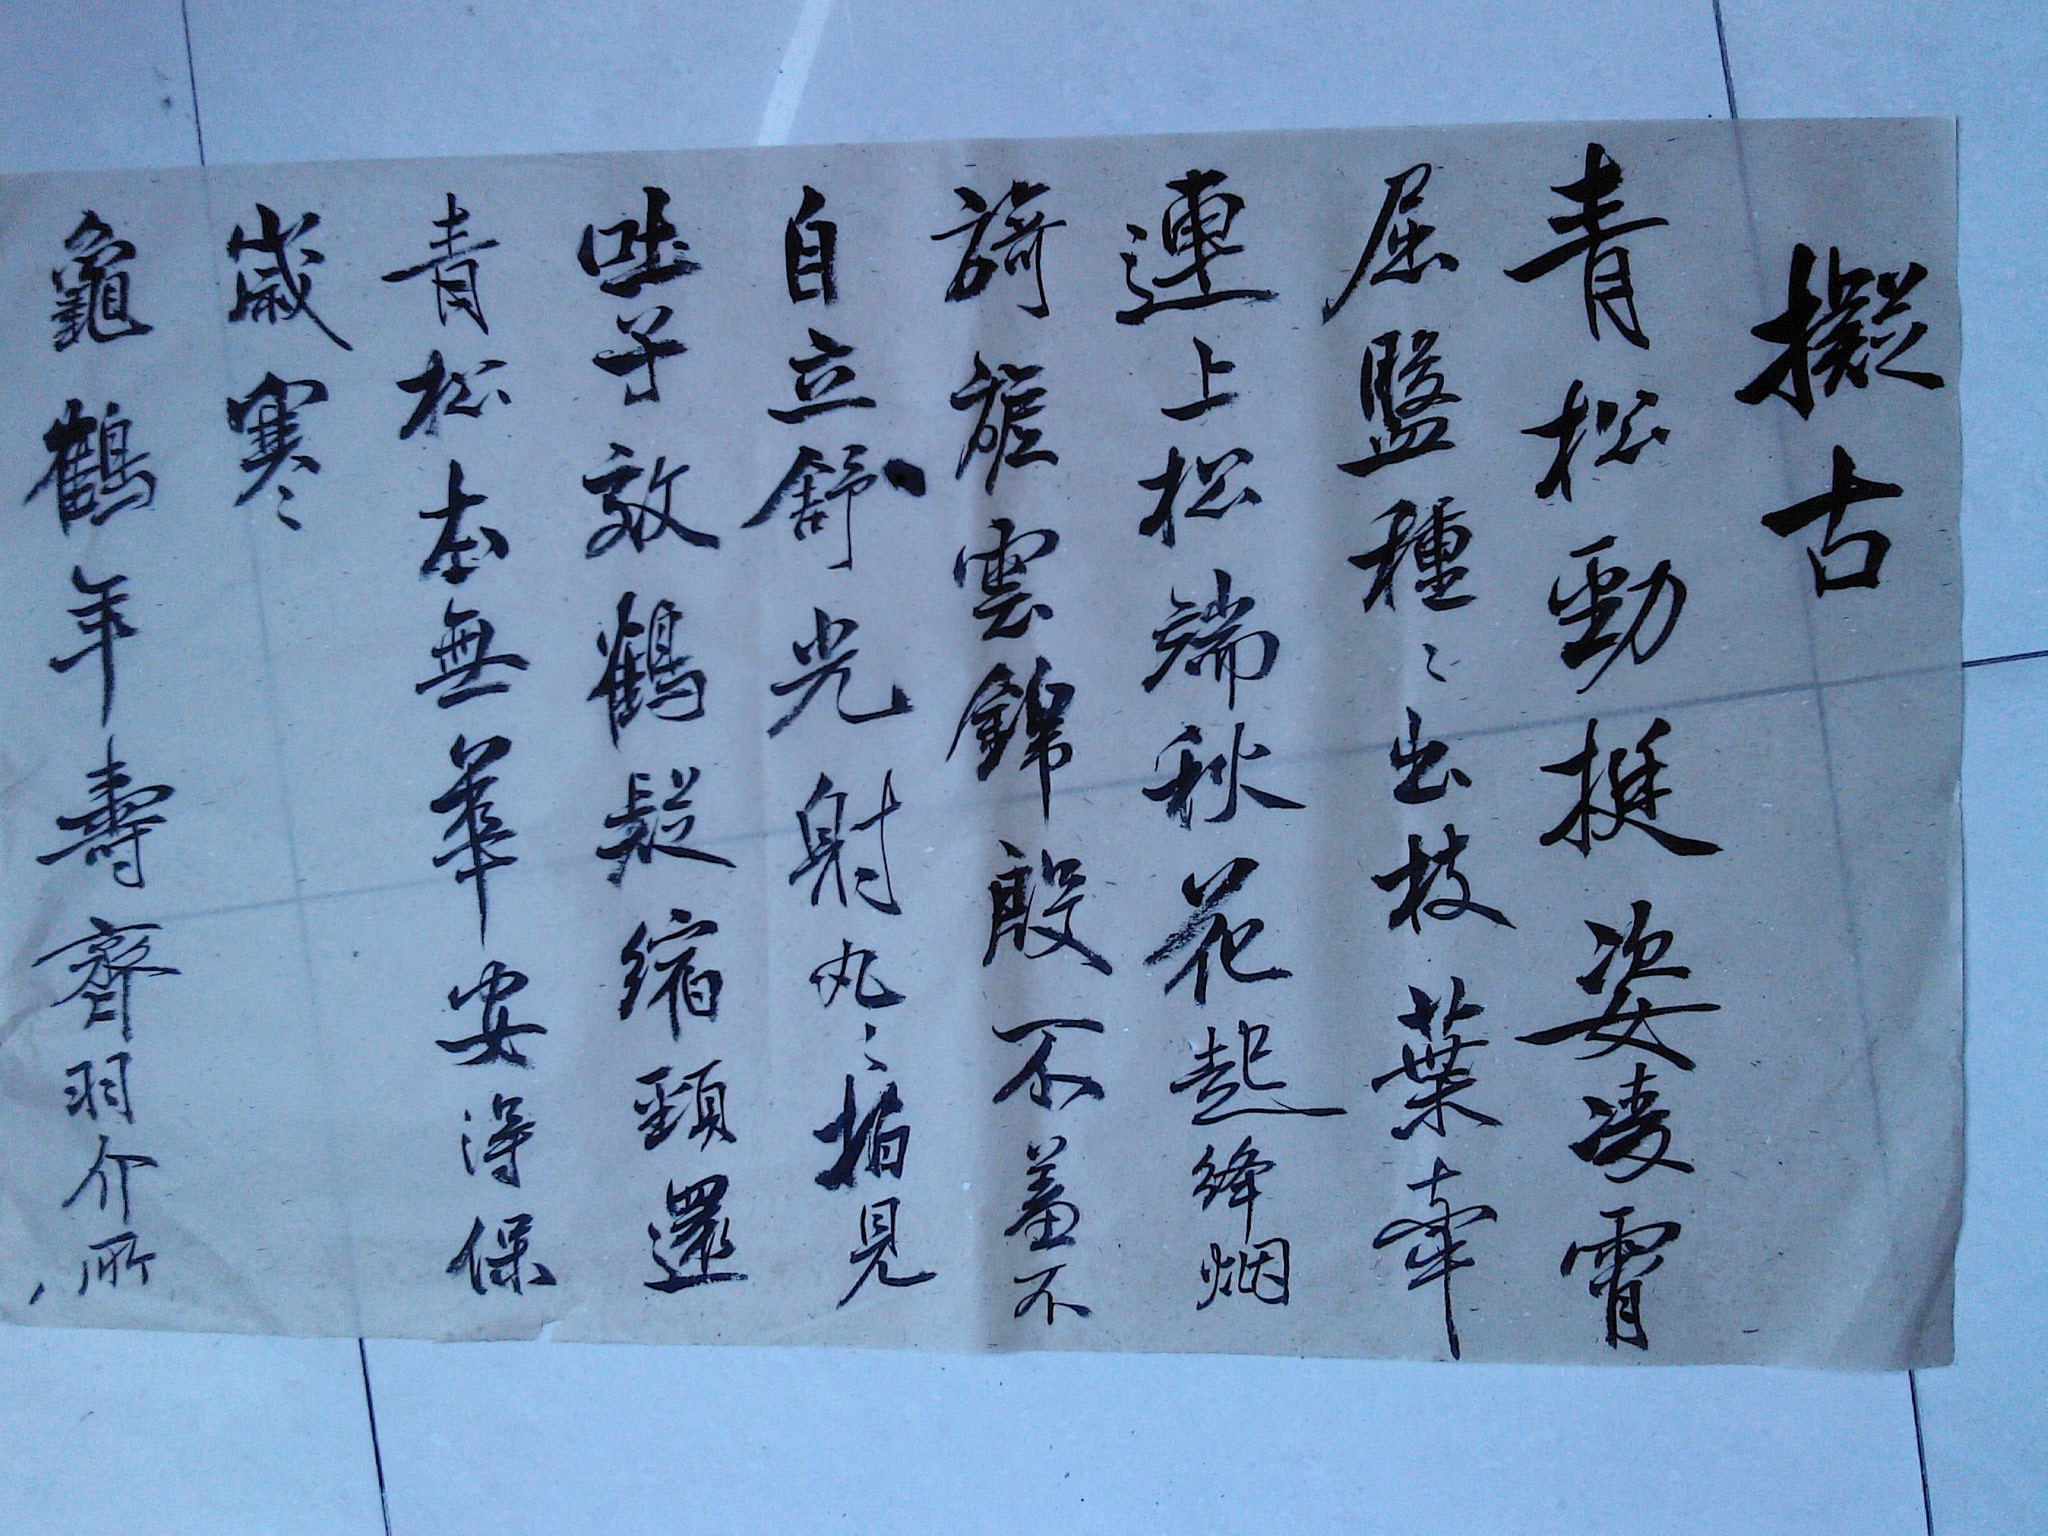 擬古
青松勁挺姿凌霄
屈盤種〻出枝葉牽
連上松端秋花起絳烟
旖旎雲錦殷不羞不
自立舒光射丸〻柏見
吐子效鶴疑縮頸還
青松本無華安得保
歲寒
龜鶴年壽齊羽介所